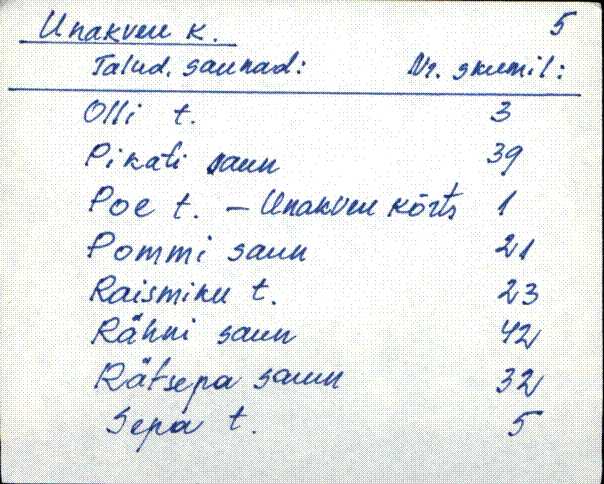 Unakvere k. 5
Talud, saunad: Nr. skeemil:
Olli t. 3
Pikati saun 39
Poe t. – Unakvere kõrts 1
Pommi saun 21
Raismiku t. 23
Rähni saun 42
Rätsepa saun 32
Sepa t. 5